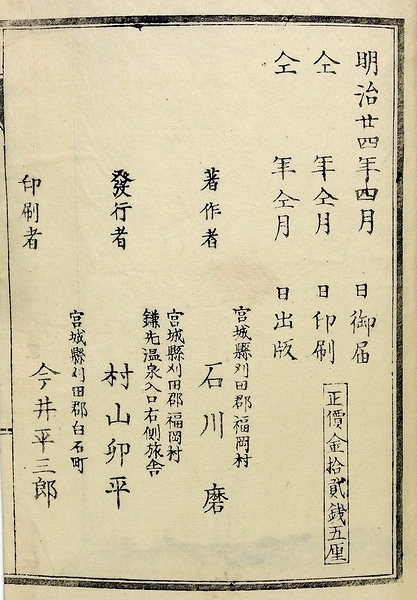 明治廿四年四月 日御届
仝 年仝月 日印刷
仝 年仝月 日出版
正價金拾貳銭五厘
宮城縣刈田郡福岡村
著作者 石川磨
宮城縣刈田郡福岡村
鎌先温泉入口右側旅舎
發行者 村山卯平
宮城縣刈田郡白石町
印刷者 今井平三郎